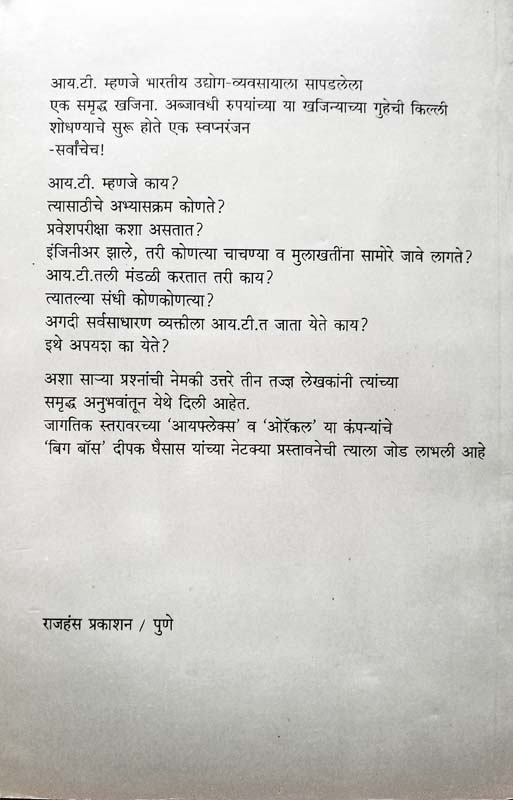 आय.टी. म्हणजे भारतीय उद्योग-व्यवसायाला सापडलेला
एक समृद्ध खजिना. अब्जावधी रुपयांच्या या खजिन्याच्या गुहेची किल्ली
शोधण्याचे सुरू होते एक स्वप्नरंजन
-सर्वांचेच!
आय.टी. म्हणजे काय?
त्यासाठीचे अभ्यासक्रम कोणते?
प्रवेशपरीक्षा कशा असतात?
इंजिनीअर झाले, तरी कोणत्या चाचण्या व मुलाखतींना सामोरे जावे लागते?
आय.टी.तली मंडळी करतात तरी काय?
त्यातल्या संधी कोणकोणत्या?
अगदी सर्वसाधारण व्यक्तीला आय.टी.त जाता येते काय?
इथे अपयश का येते?
अशा साऱ्या प्रश्नांची नेमकी उत्तरे तीन तज्ज्ञ लेखकांनी त्यांच्या
समृद्ध अनुभवांतून येथे दिली आहेत.
जागतिक स्तरावरच्या ‘आयफ्लेक्स’ व ‘ओरॅकल’ या कंपन्यांचे
‘बिग बॉस’ दीपक घैसास यांच्या नेटक्या प्रस्तावनेची त्याला जोड लाभली आहे
राजहंस प्रकाशन / पुणे